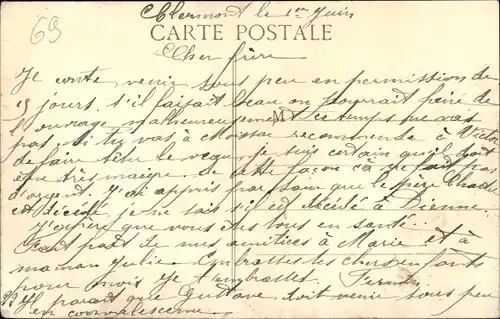 69
Clermont le 1er Juin
CARTE POSTALE
Cher frère
Je conte venir sous peu en permission de
15 jours. s'il faisait beau on pourrait faire de
l'ouvrage malheureusement ce temps ne vas
pas. Si tu vas à recommende à Victor
de faire têter le je suis certain qu'il doit
être très maigre de cette façon ça ne fait pas
d'argent. J'ai appris par Sam que le père
est décidé je ne sais s'il est décédé à Dienne
J'espère que vous êtes tous en santé.
Fait part de mes amitiées à Marie et à
maman Julie Embrasse les chers enfants
pour moi Je t'embrasse. Fernand
P.S. Il parait que Gustave doit venir sous peu
en convalescence